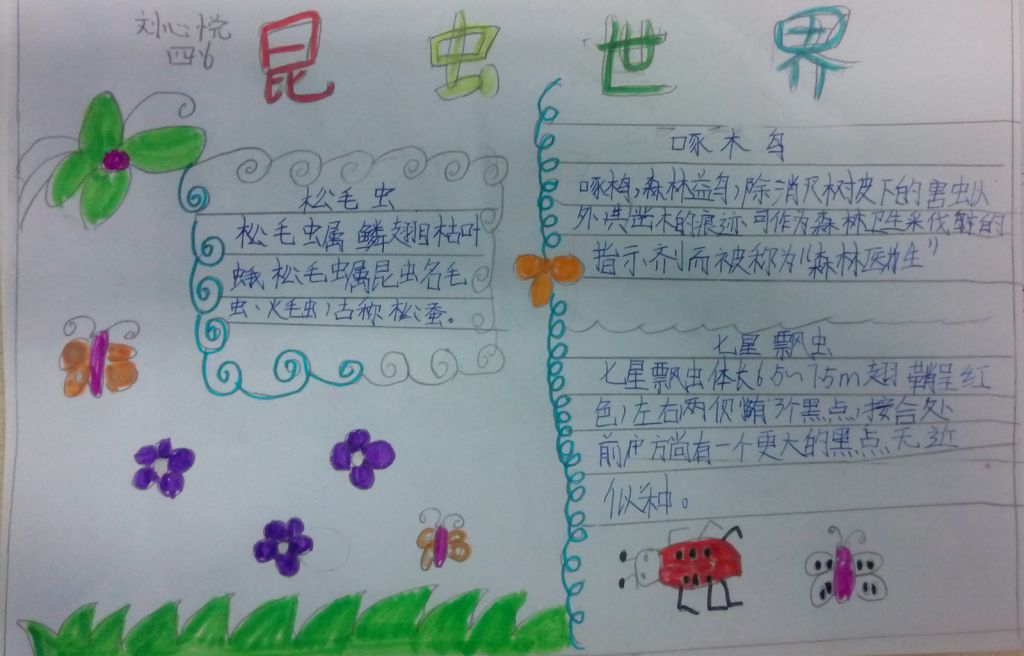 刘心悦
四6
昆虫世界
松毛虫
松毛虫属鳞翅目枯叶
蛾松毛虫属昆虫名毛
虫、火毛虫,古称松蚕。
啄木鸟
啄木鸟,森林益鸟,除消灭树皮下的害虫以
外,其凿木的痕迹可作为森林卫生采伐的
指示剂而被称为“森林医生”
七星飘虫
七星飘虫体长6.5~7.5m翅鞘呈红
色,左右两侧有3个黑点,接合处
前方尚有一个更大的黑点无近
似种。